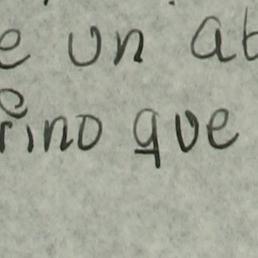 e un at
rino que